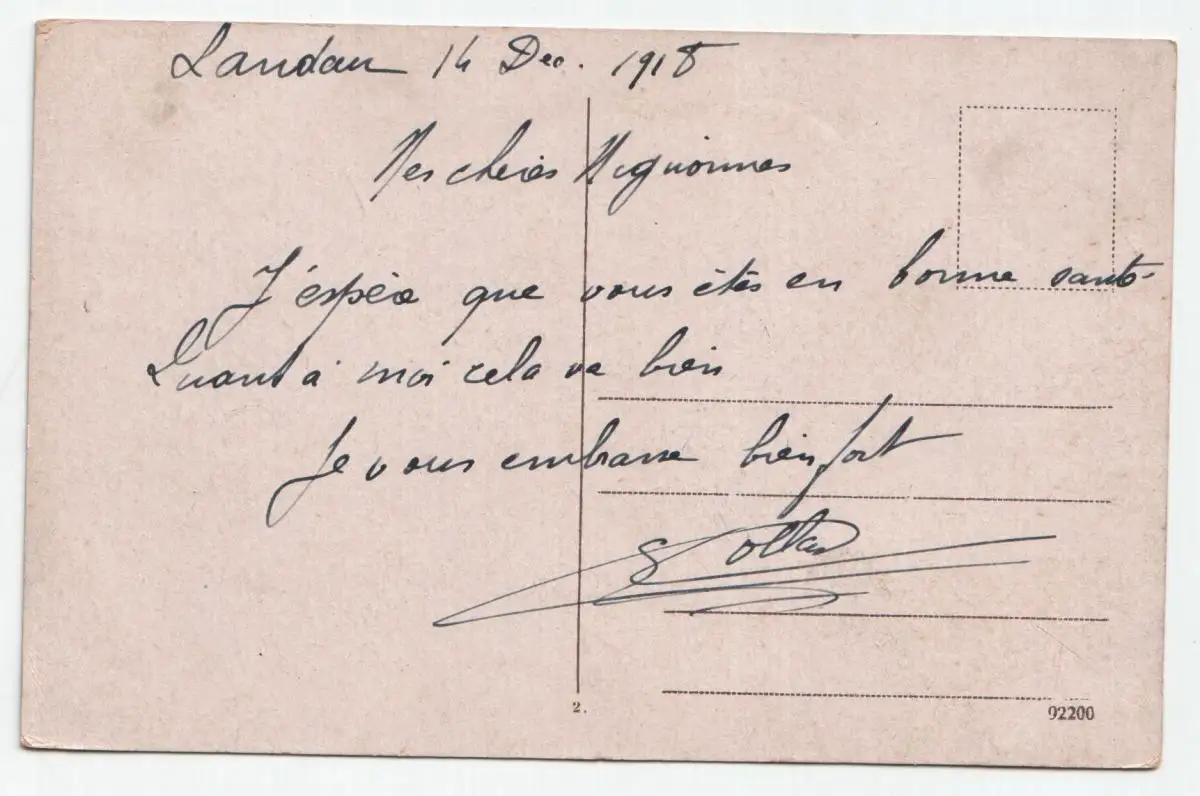 Landau 14 Dec. 1918
Mes chères Mignonnes
J'espère que vous êtes en bonne santé
Quant à moi cela va bien
Je vous embrasse bien fort
2.
92200